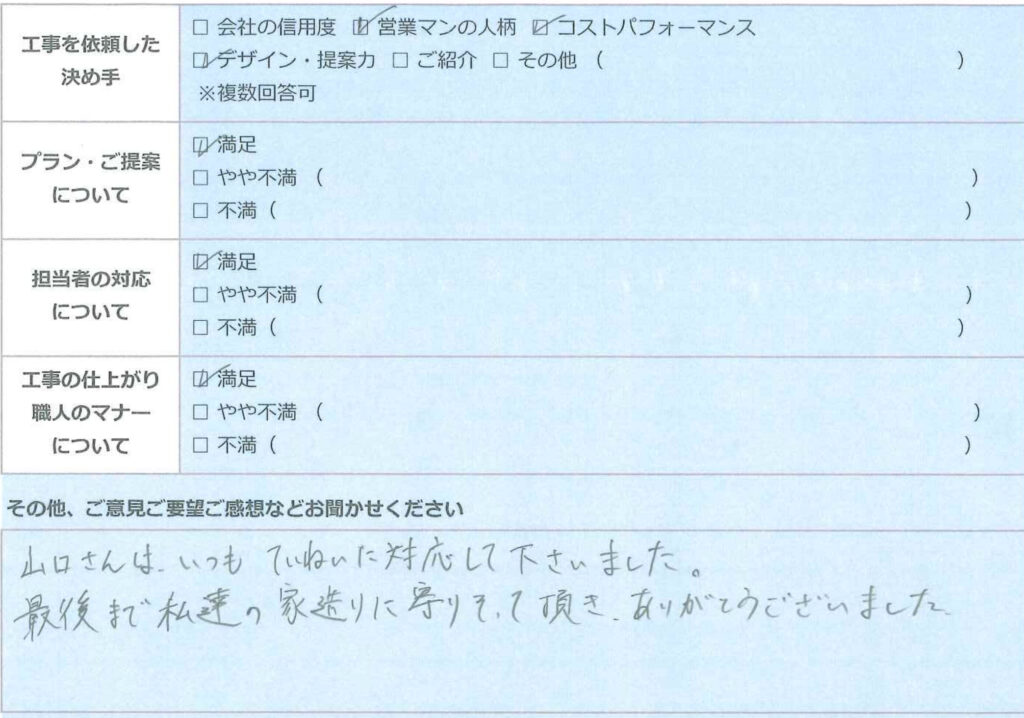 工事を依頼した
決め手
□ 会社の信用度 ☑ 営業マンの人柄 ☑ コストパフォーマンス
☑ デザイン・提案力 □ ご紹介 □ その他 （ ）
※複数回答可
プラン・ご提案
について
☑ 満足
□ やや不満 （ ）
□ 不満（ ）
担当者の対応
について
☑ 満足
□ やや不満 （ ）
□ 不満（ ）
工事の仕上がり
職人のマナー
について
☑ 満足
□ やや不満 （ ）
□ 不満（ ）
その他、ご意見ご要望ご感想などお聞かせください
山口さんは、いつも ていねいに対応して下さいました。
最後まで私達の家造りに寄りそって頂き、ありがとうございました